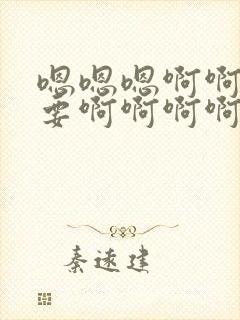 嗯嗯嗯啊啊
要啊啊啊啊
秦速建